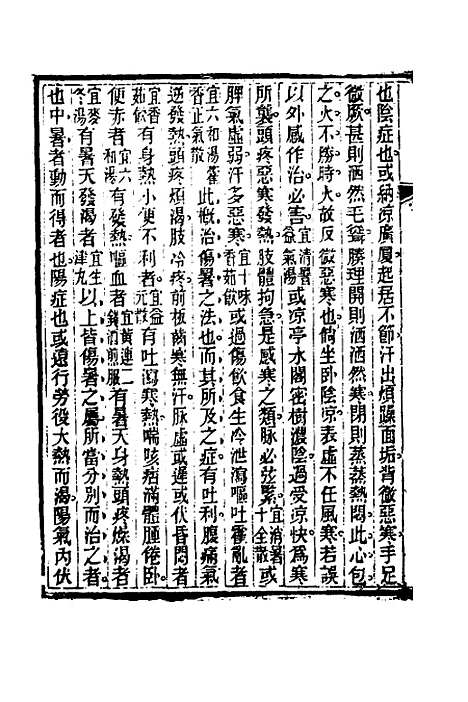 也陰症也或納涼廣厦起居不節汗出煩躁面垢背微惡寒手足
微厥甚則洒然毛聳腠理開則洒洒然寒閉則蒸蒸熱悶此心包
之火不勝時火故反微惡寒也倘坐卧陰涼表虛不任風寒若誤
以外感作治必害宜清暑益氣湯或涼亭水閣密樹濃陰過受涼快爲寒
所襲頭疼惡寒發熱肢體拘急是感寒之類脉必弦緊宜消暑十全散或
脾氣虛弱汗多惡寒宜十味香茹飲或過傷飲食生冷泄瀉嘔吐霍亂者
宜六和湯藿香正氣散此概治傷暑之法也而其所及之症有吐利腹痛氣
逆發熱頭疼煩渴肢冷疼前板齒寒無汗脉虛或遲或伏昏悶者
宜香茹飲有身熱小便不利者宜益元散有吐瀉寒熱喘咳痞滿體腫倦卧
便赤者宜六和湯有發熱嘔血者宜黃連一錢酒煎服有暑天身熱頭疼燥渴者
宜麥冬湯有暑天發渴者宜生津丸以上皆傷暑之屬所當分别而治之者
也中暑者動而得者也陽症也或遠行勞役大熱而渴陽氣内伏